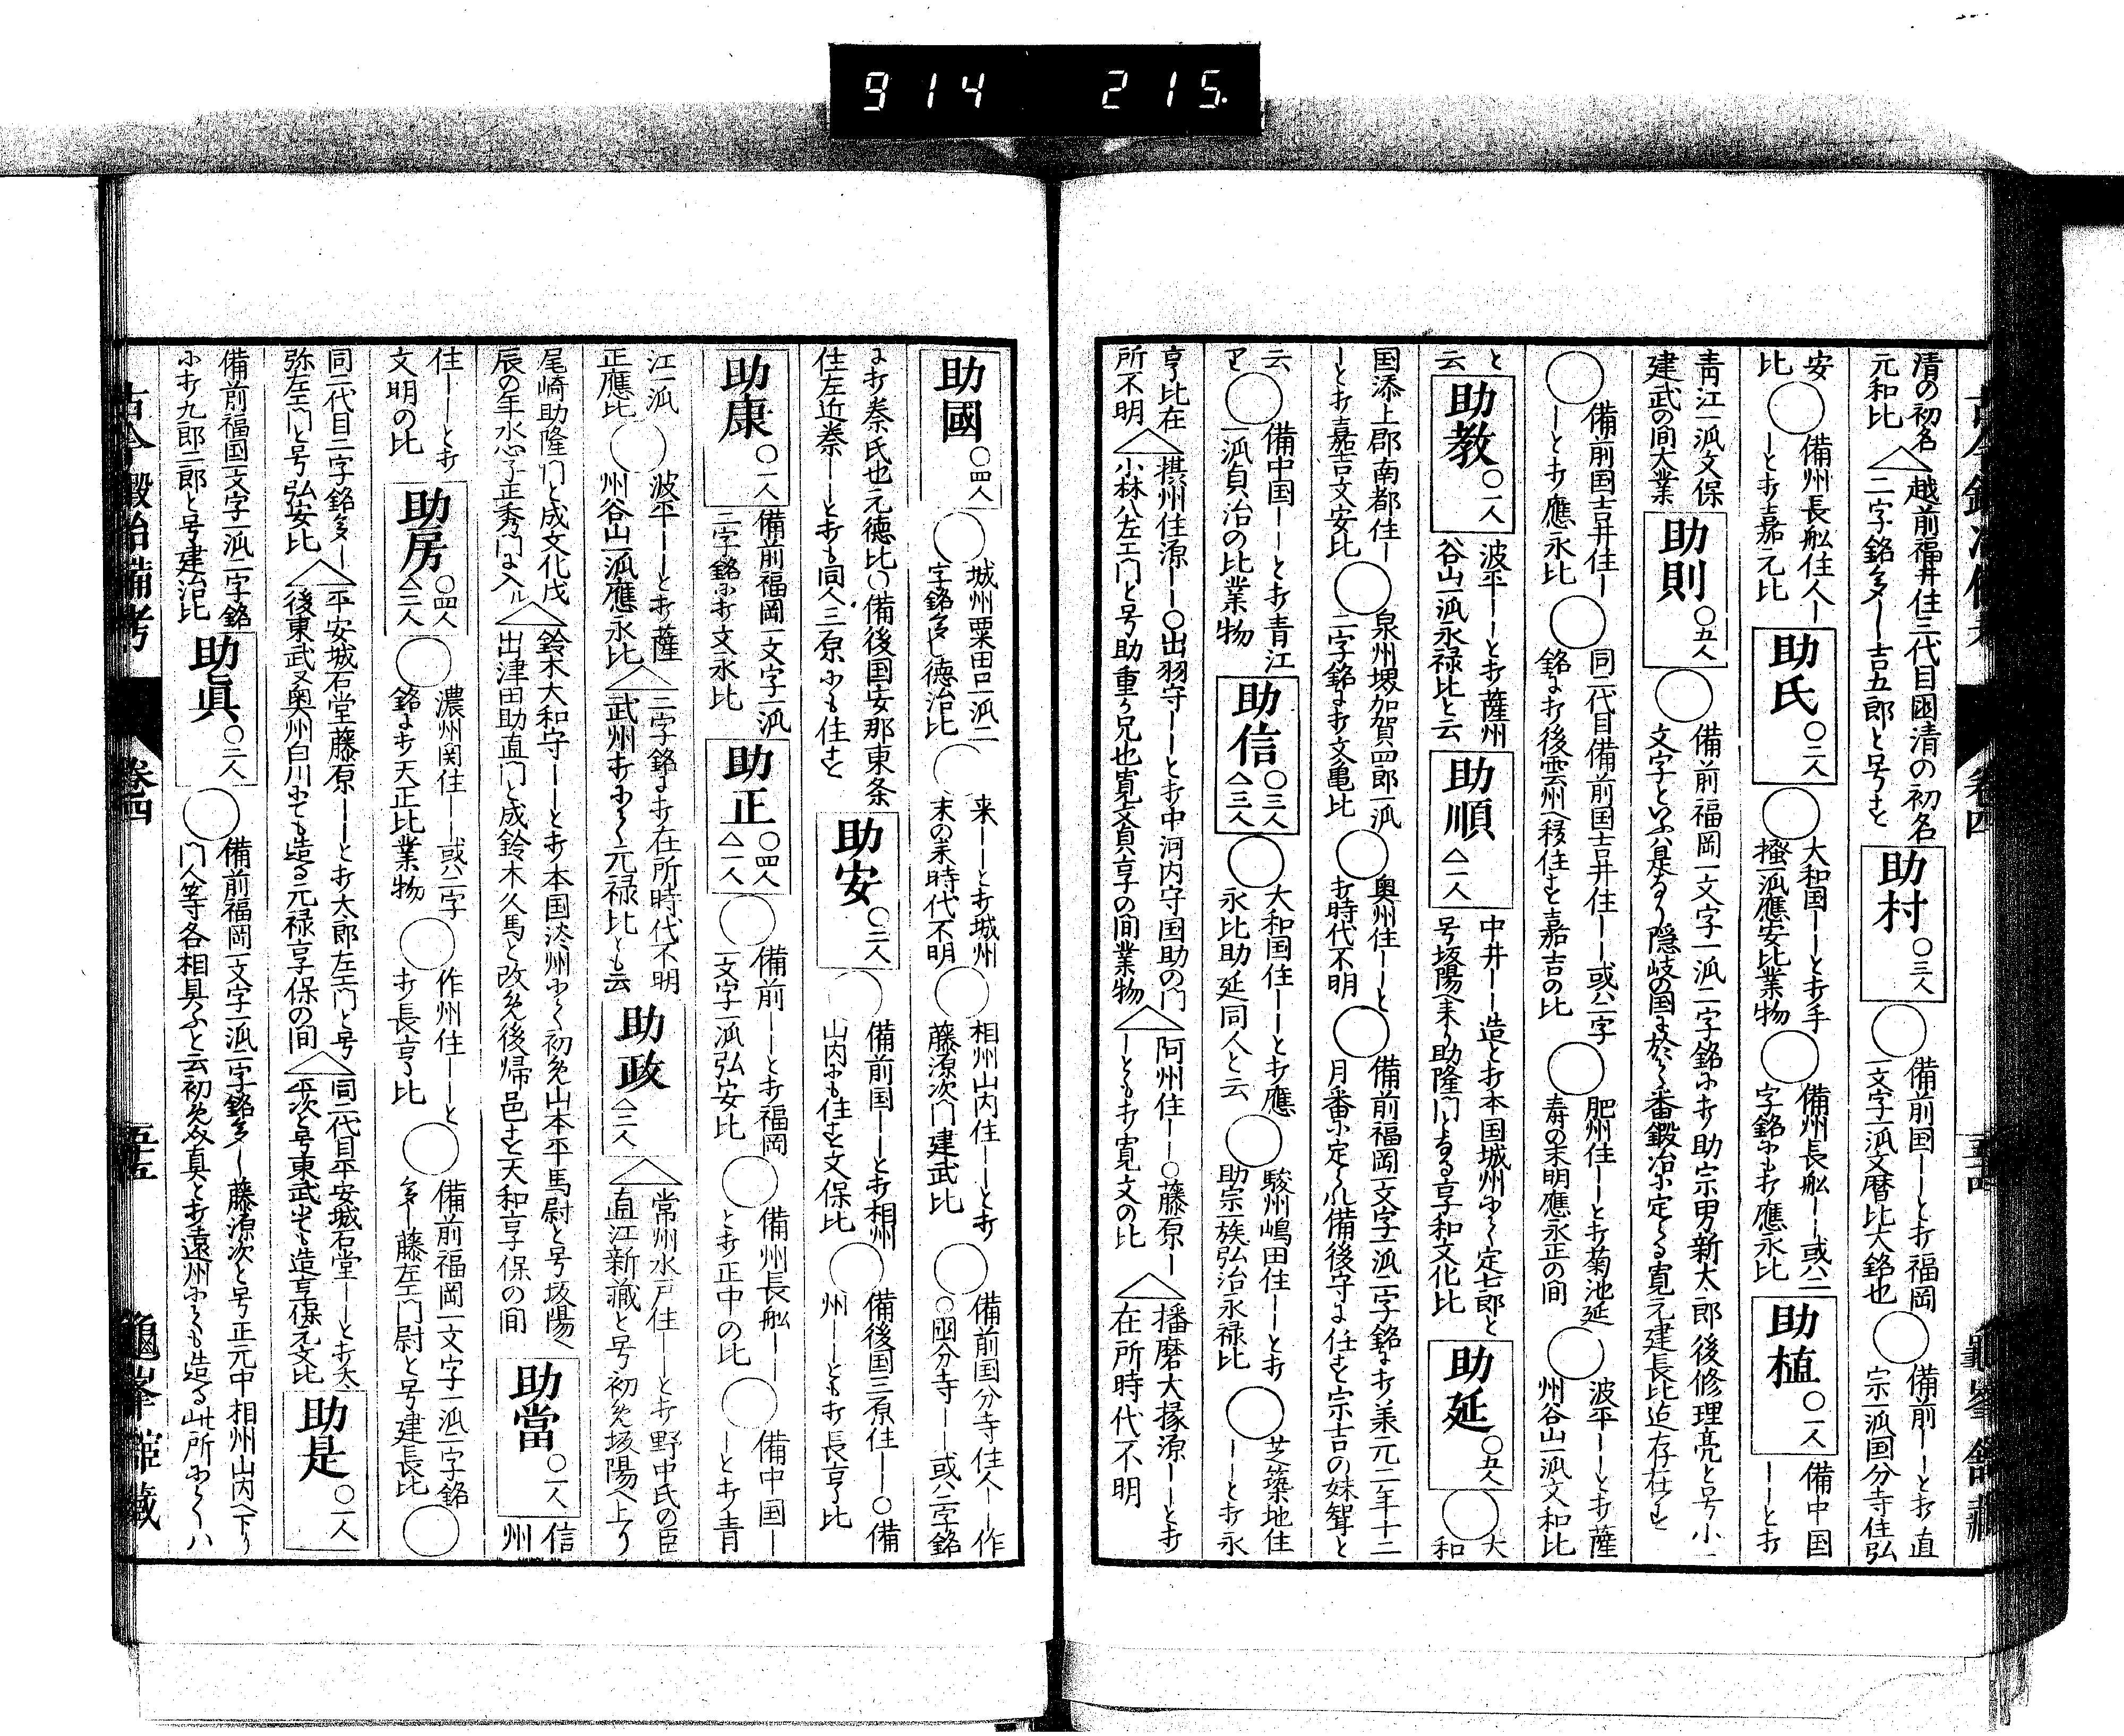 914 215.
清の初名
元和比
△越前福井住三代目国清の初名
二字銘多し吉五郎と号す
助村 〇三人
〇備前国ーーと打福岡
一文字一派文暦比大銘也
〇備前ーーと打直
宗一派国分寺住弘
安
比
〇備州長舩住人ー
ーと打嘉元比
助氏 〇二人
〇大和国ーーと打手
掻一派應安比業物
〇備州長舩ーー或ハ二
字銘にも打應永比
助植 〇一人
備中国
ーーと打
青江一派文保
建武の間大業
助則 〇五人
〇備前福岡一文字一派二字銘に打助宗男新太郎後修理亮と号小一
文字といふハ是なり隠岐の国に於て番鍛冶に定らる寛元建長比迄存在す
〇備前国吉井住ー
ーと打應永比
〇同二代目備前国吉井住ーー或ハ二字
銘に打後雲州へ移住すと嘉吉の比
〇肥州住ーーと打菊池延
寿の末明應永正の間
〇波平ーーと打薩
州谷山一派文和比
と
云
助教 〇一人
波平ーーと打薩州
谷山一派永禄比と云
助順 △一人
中井ーー造と打本国城州にて定七郎と
号坂陽へ来り助隆門となる享和文化比
助延 〇五人
〇大
和
国添上郡南都住ー
ーと打嘉吉文安比
〇泉州堺加賀四郎一派
二字銘に打文亀比
〇奥州住ーーと
打時代不明
〇備前福岡一文字一派二字銘に打承元二年十二
月番に定らレ備後守に任す宗吉の妹聟と
云
〇備中国ーーと打青江
一派貞治の比業物
助信 〇三人 △三人
〇大和国住ーーと打應
永比助延同人と云
〇駿州嶋田住ーーと打
助宗一族弘治永禄比
〇芝築地住
ーーと打永
享比在
所不明
△摂州住源ーー〇出羽守ーーと打中河内守国助の門
小林八左エ門と号助重の兄也寛文貞享の間業物
△阿州住ーー〇藤原ー
ーとも打寛文の比
△播磨大掾源ーーと打
在所時代不明
助國 〇四人
〇城州粟田口一派二
字銘多し徳治比
〇来ーーと打城州
末の末時代不明
〇相州山内住ーーと打
藤源次門建武比
〇備前国分寺住人ーー作
〇國分寺ーー或ハ二字銘
に打秦氏也元徳比〇備後国安那東条
住左近桊ーーと打も同人三原にも住す
助安 〇二人
〇備前国ーーと打相州
山内にも住す文保比
〇備後国三原住ーー〇備
州ーーとも打長亨比
助康 〇一人
備前福岡一文字一派
二字銘に打文永比
助正 〇四人 △一人
〇備前ーーと打福岡
一文字一派弘安比
〇備州長舩ーー
と打正中の比
〇備中国ー
ーと打青
江一派
正應比
〇波平ーーと打薩
州谷山一派應永比
△二字銘に打在所時代不明
武州打にて元禄比とも云
助政 △二人
△常州水戸住ーーと打野中氏の臣
直江新蔵と号初め坂陽へ上り
尾崎助隆門と成文化戊
辰の年水心子正秀門に入ル
△鈴木大和守ーーと打本国淡州にて初め山本平馬尉と号坂陽へ
出津田助直門と成鈴木久馬と改め後帰邑す天和享保の間
助當 〇一人
信
州
住ーーと打
文明の比
助房 〇四人 △三人
〇濃州関住ーー或ハ二字
銘に打天正比業物
〇作州住ーーと
打長亨比
〇備前福岡一文字一派二字銘
多し藤左エ門尉と号建長比
〇
同二代目二字銘多し
弥左エ門と号弘安比
△平安城石堂藤原ーーと打太郎左エ門と号
後東武又奥州白川にても造る元禄享保の間
△同二代目平安城石堂ーーと打太
平次と号東武にても造享保元文比
助是 〇一人
備前福岡一文字一派二字銘
に打九郎二郎と号建治比
助真 〇二人
〇備前福岡一文字一派二字銘多し藤源次と号正元中相州山内へ下り
門人等各相具ふと云初め真と打遠州にても造る此所にてハ
古今鍛冶備考 巻四 五十五 龜峯館蔵